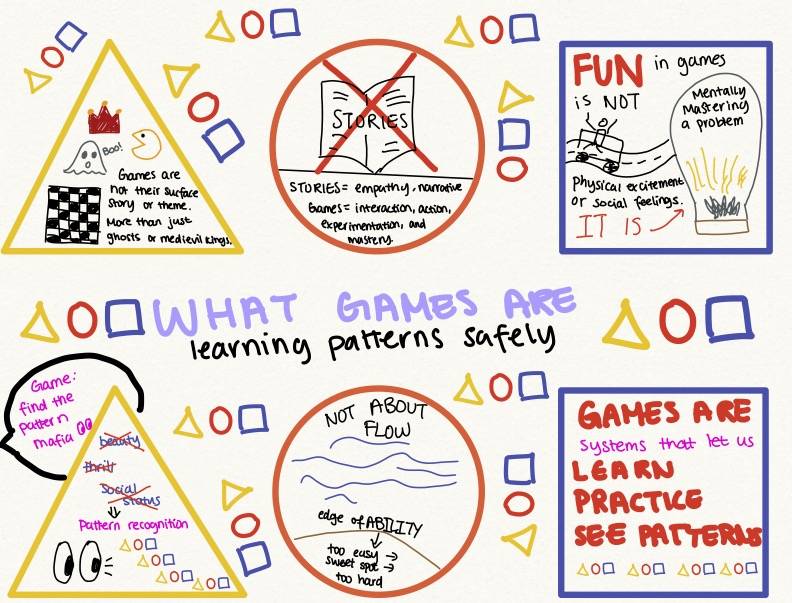 BOO!
Games are
not their surface
story or theme.
More than just
ghosts or medievil kings.
STORIES
STORIES = empathy, narrative
Games = interaction, action,
experimentation, and
mastery.
FUN in games
is NOT
Physical excitement
or social feelings.
IT IS
Mentally
Mastering
a problem
WHAT GAMES ARE
learning patterns safely
Game:
find the
pattern
mafia
beauty
thrill
Social
status
Pattern recognition
NOT ABOUT
FLOW
edge of ABILITY
too easy
sweet spot
too hard
GAMES ARE
Systems that let us
LEARN
PRACTICE
SEE PATTERNS